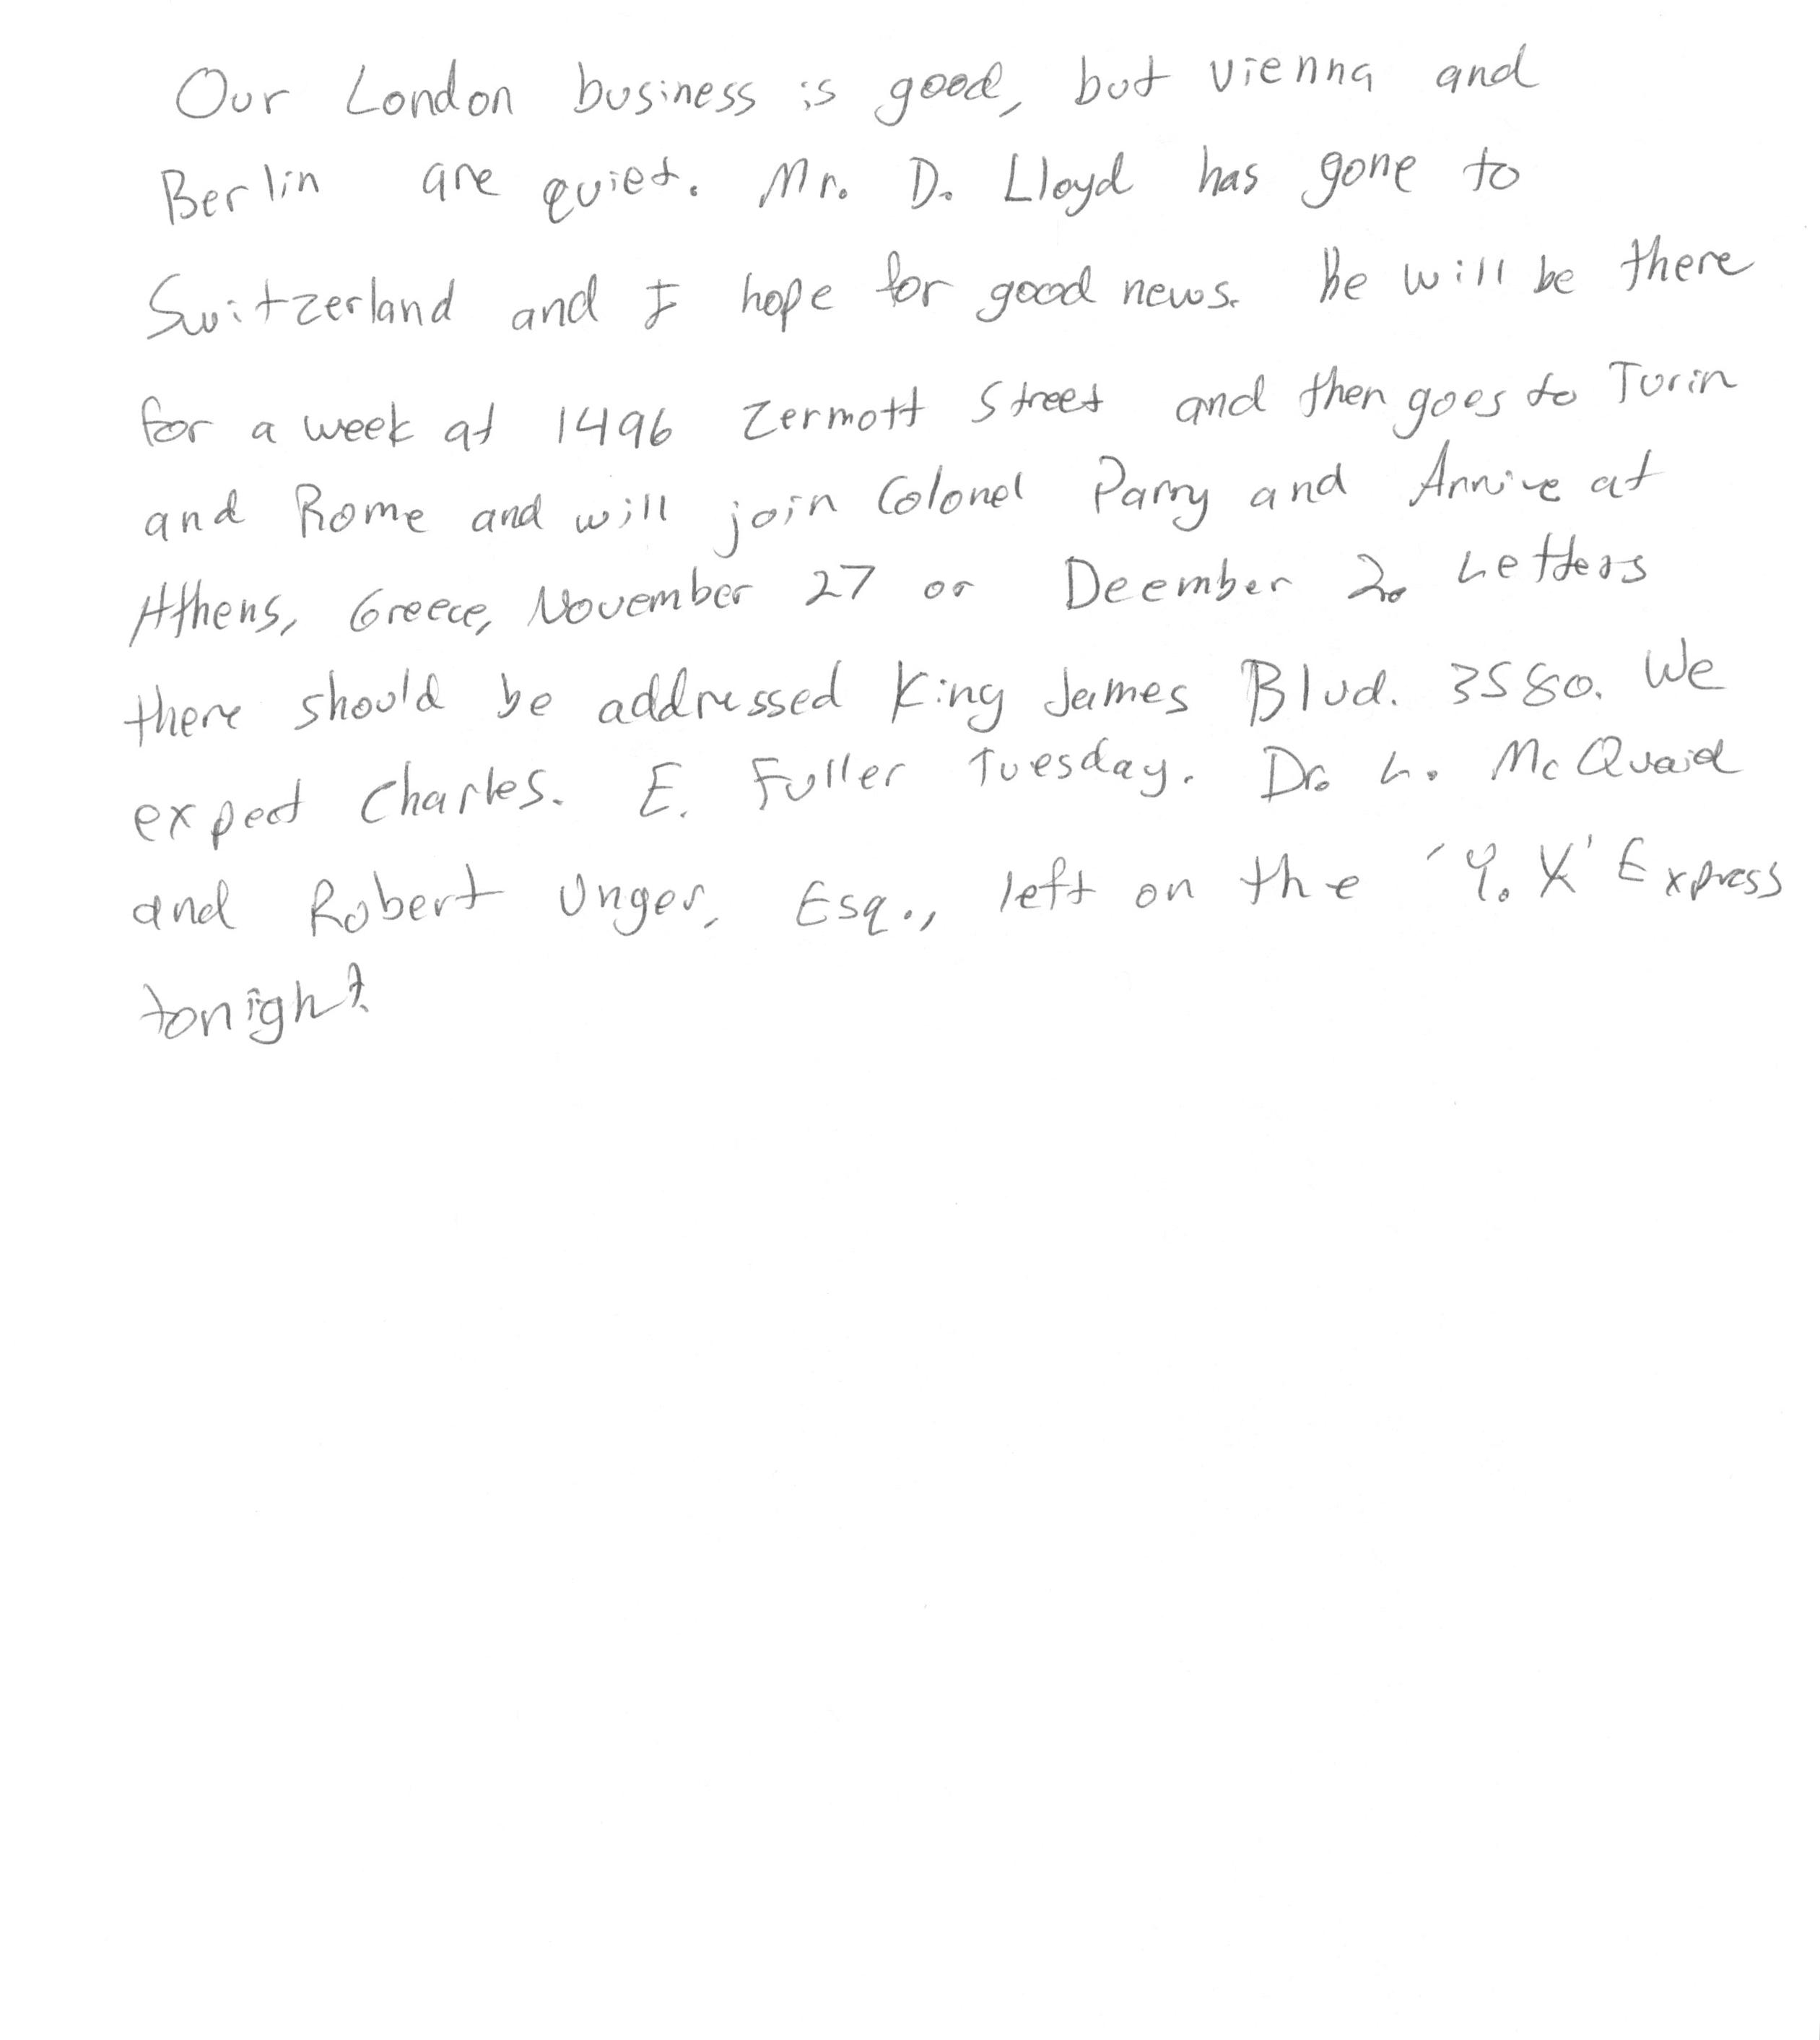 Our London business is good, but Vienna and
Berlin are quiet. Mr. D. Lloyd has gone to
Switzerland and I hope for good news. He will be there
for a week at 1496 Zermott Street and then goes to Turin
and Rome and will join Colonel Parry and Arrive at
Athens, Greece, November 27 or Deember 2. Letters
there should be addressed King James Blvd. 3580. We
expect Charles. E. Fuller Tuesday. Dr. L. McQuaid
and Robert Unger, Esq., left on the 'Y. X' Express
tonight.